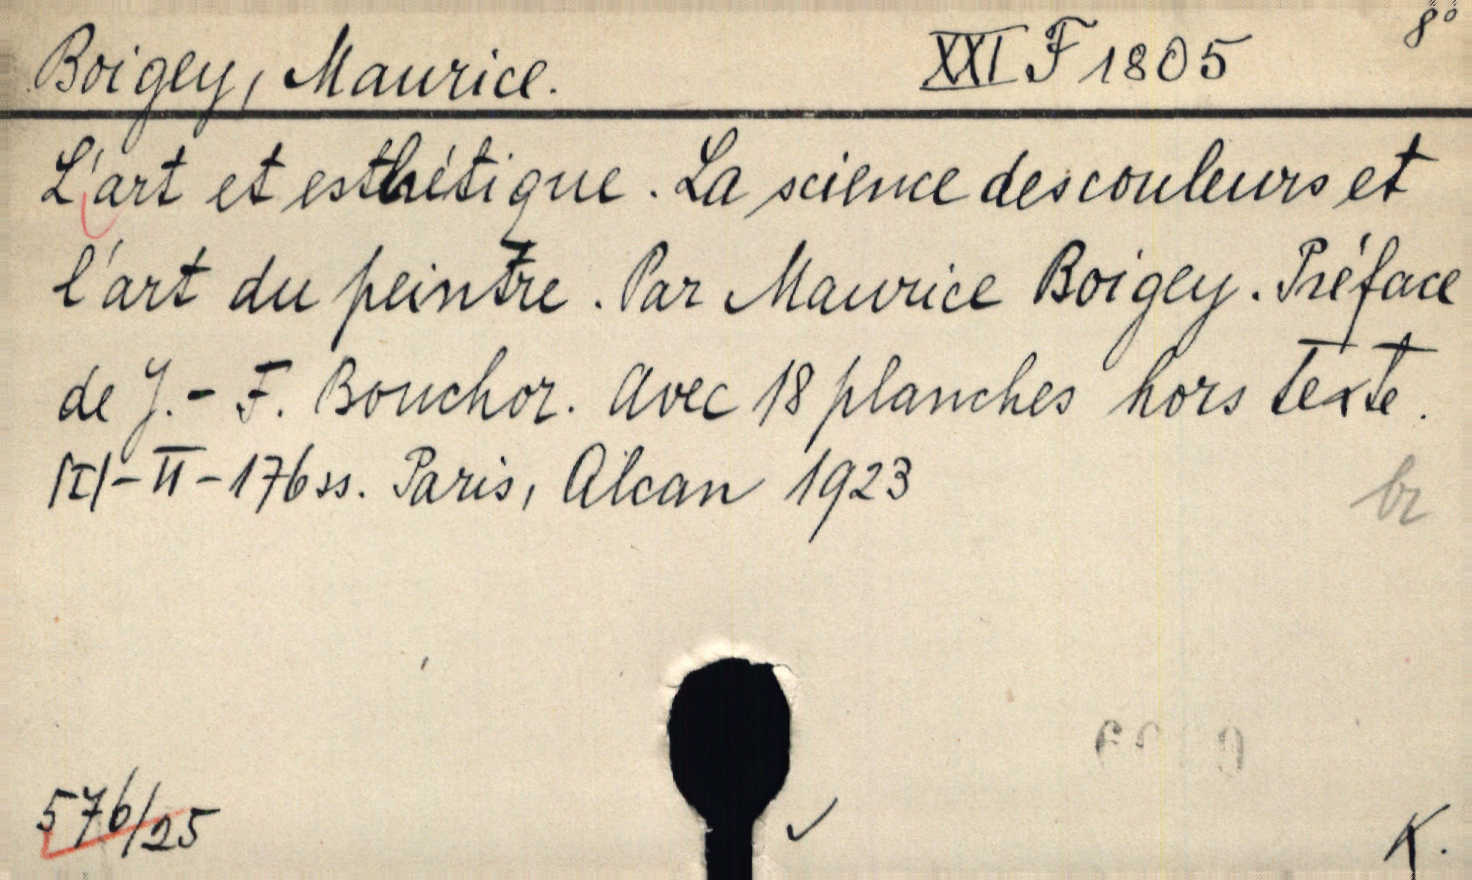 Boigey, Maurice. XXI F 1805 8°
L'art et esthétique. La science des couleurs et
l'art du peintre. Par Maurice Boigey. Préface
de J.-F. Bouchor. Avec 18 planches hors texte.
|I|-II-176 ss. Paris, Alcan 1923
br
576/25
K.